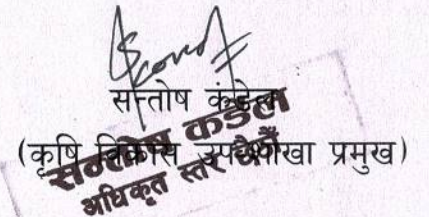 सन्तोष कंडेल
(कृषि विकास उपशाखा प्रमुख)
सन्तोष कंडेल
अधिकृत स्तर छैठौँ